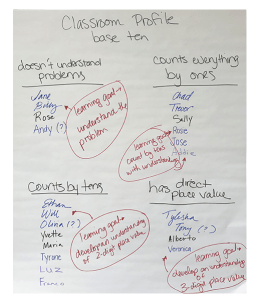 Classroom Profile
base ten
doesn't understand
problems
Jane
Bobby
Rose
Andy (?)
learning goal→
understand the
problem
counts everything
by ones
Chad
Trevor
Sally
Rose
Jose
Addie
learning goal→
count by tens
with understanding
Counts by tens
Ethan
Will
Olivia (?)
Yvette
Maria
Tyrone
Luz
Franco
learning goal→
develop an understanding
of 2-digit place value
has direct
place value
Tylesha
Tony (?)
Alberto
Veronica
learning goal→
develop an understanding
of
3-digit place value